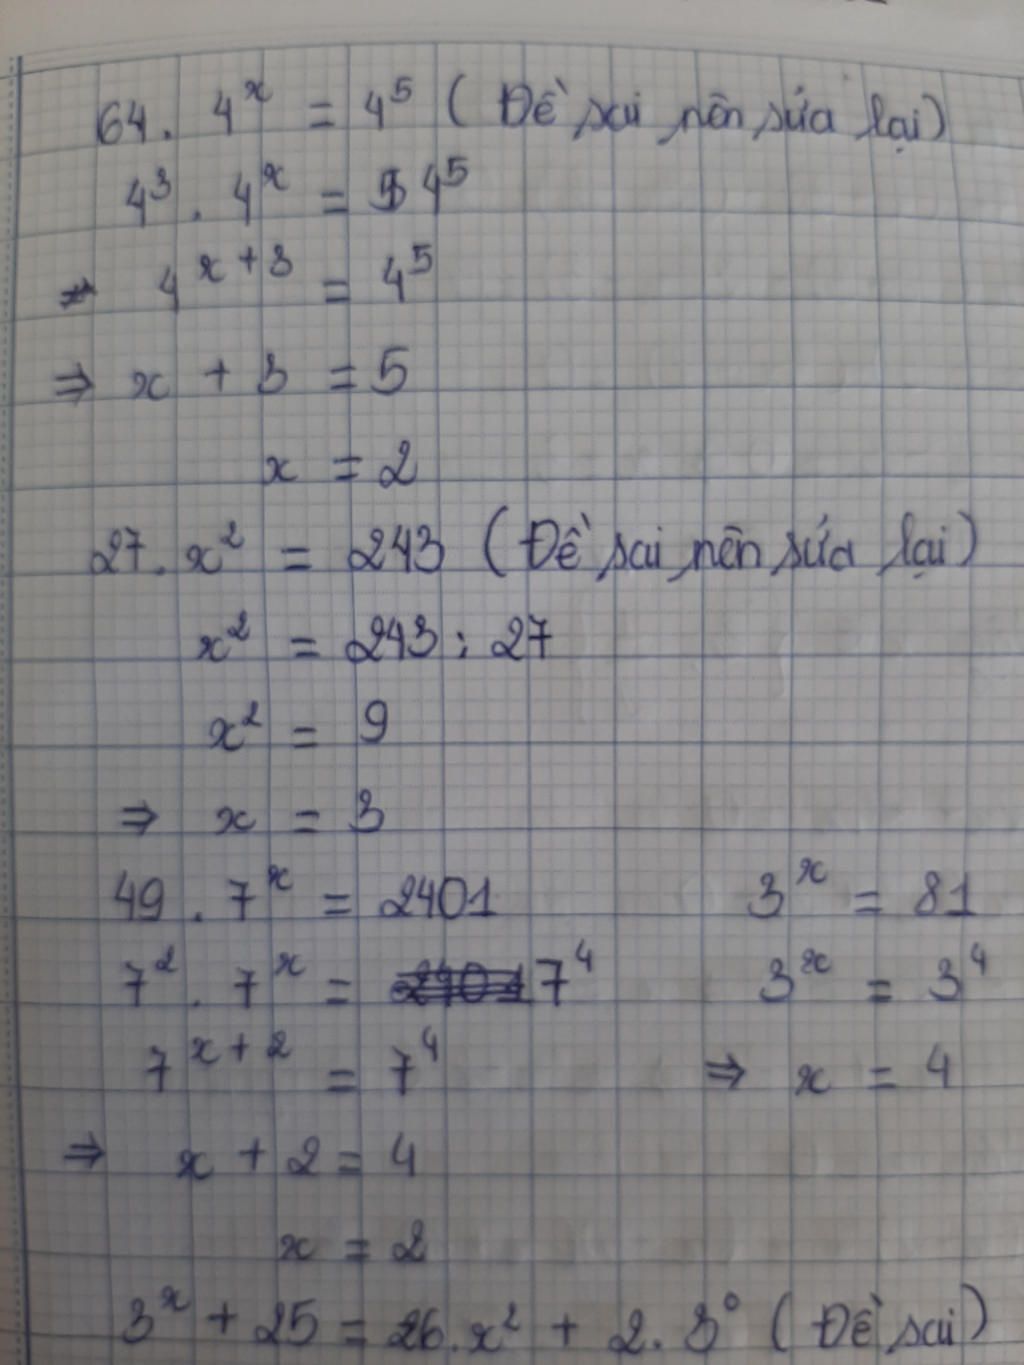 64. 4^x = 4^5 ( Đề sai nên sửa lại )
4^3 . 4^x = 4^5
4^{x+3} = 4^5
⇒ x + 3 = 5
x = 2
27. x^2 = 243 ( Đề sai nên sửa lại )
x^2 = 243 : 27
x^2 = 9
⇒ x = 3
49 . 7^x = 2401
7^2 . 7^x = 7^4
7^{x+2} = 7^4
⇒ x + 2 = 4
x = 2
3^x = 81
3^x = 3^4
⇒ x = 4
3^x + 25 = 26. x^2 + 2. 3^0 ( Đề sai )